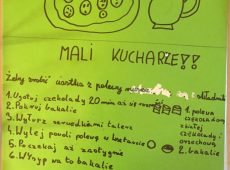 MALI KUCHARZE!!
Żeby zrobić ciastka z polewą
1. Ugotuj czekoladę 20 min aż się
2. Pokrój bakalie
3. Wyłóż serwetkami talerz
4. Wylej powoli polewę w
5. Poczekaj aż zastygnie
6. Wsyp na to bakalie
1. polewa
czekoladowa
białej
czekolady i
orzechowej
2. bakalie